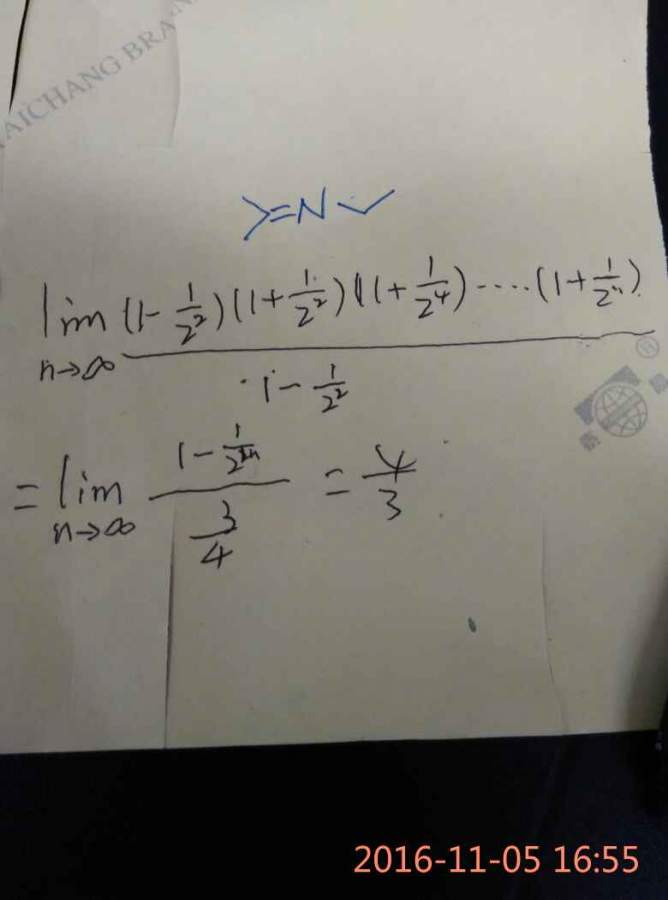 AICHANG BRAN
>=N
lim (1-1/2²)(1+1/2²)(1+1/2⁴)·····(1+1/2ⁿ)
n→∞ 1-1/2²
= lim (1-1/2²ⁿ)/(3/4) = 4/3
n→∞
2016-11-05 16:55